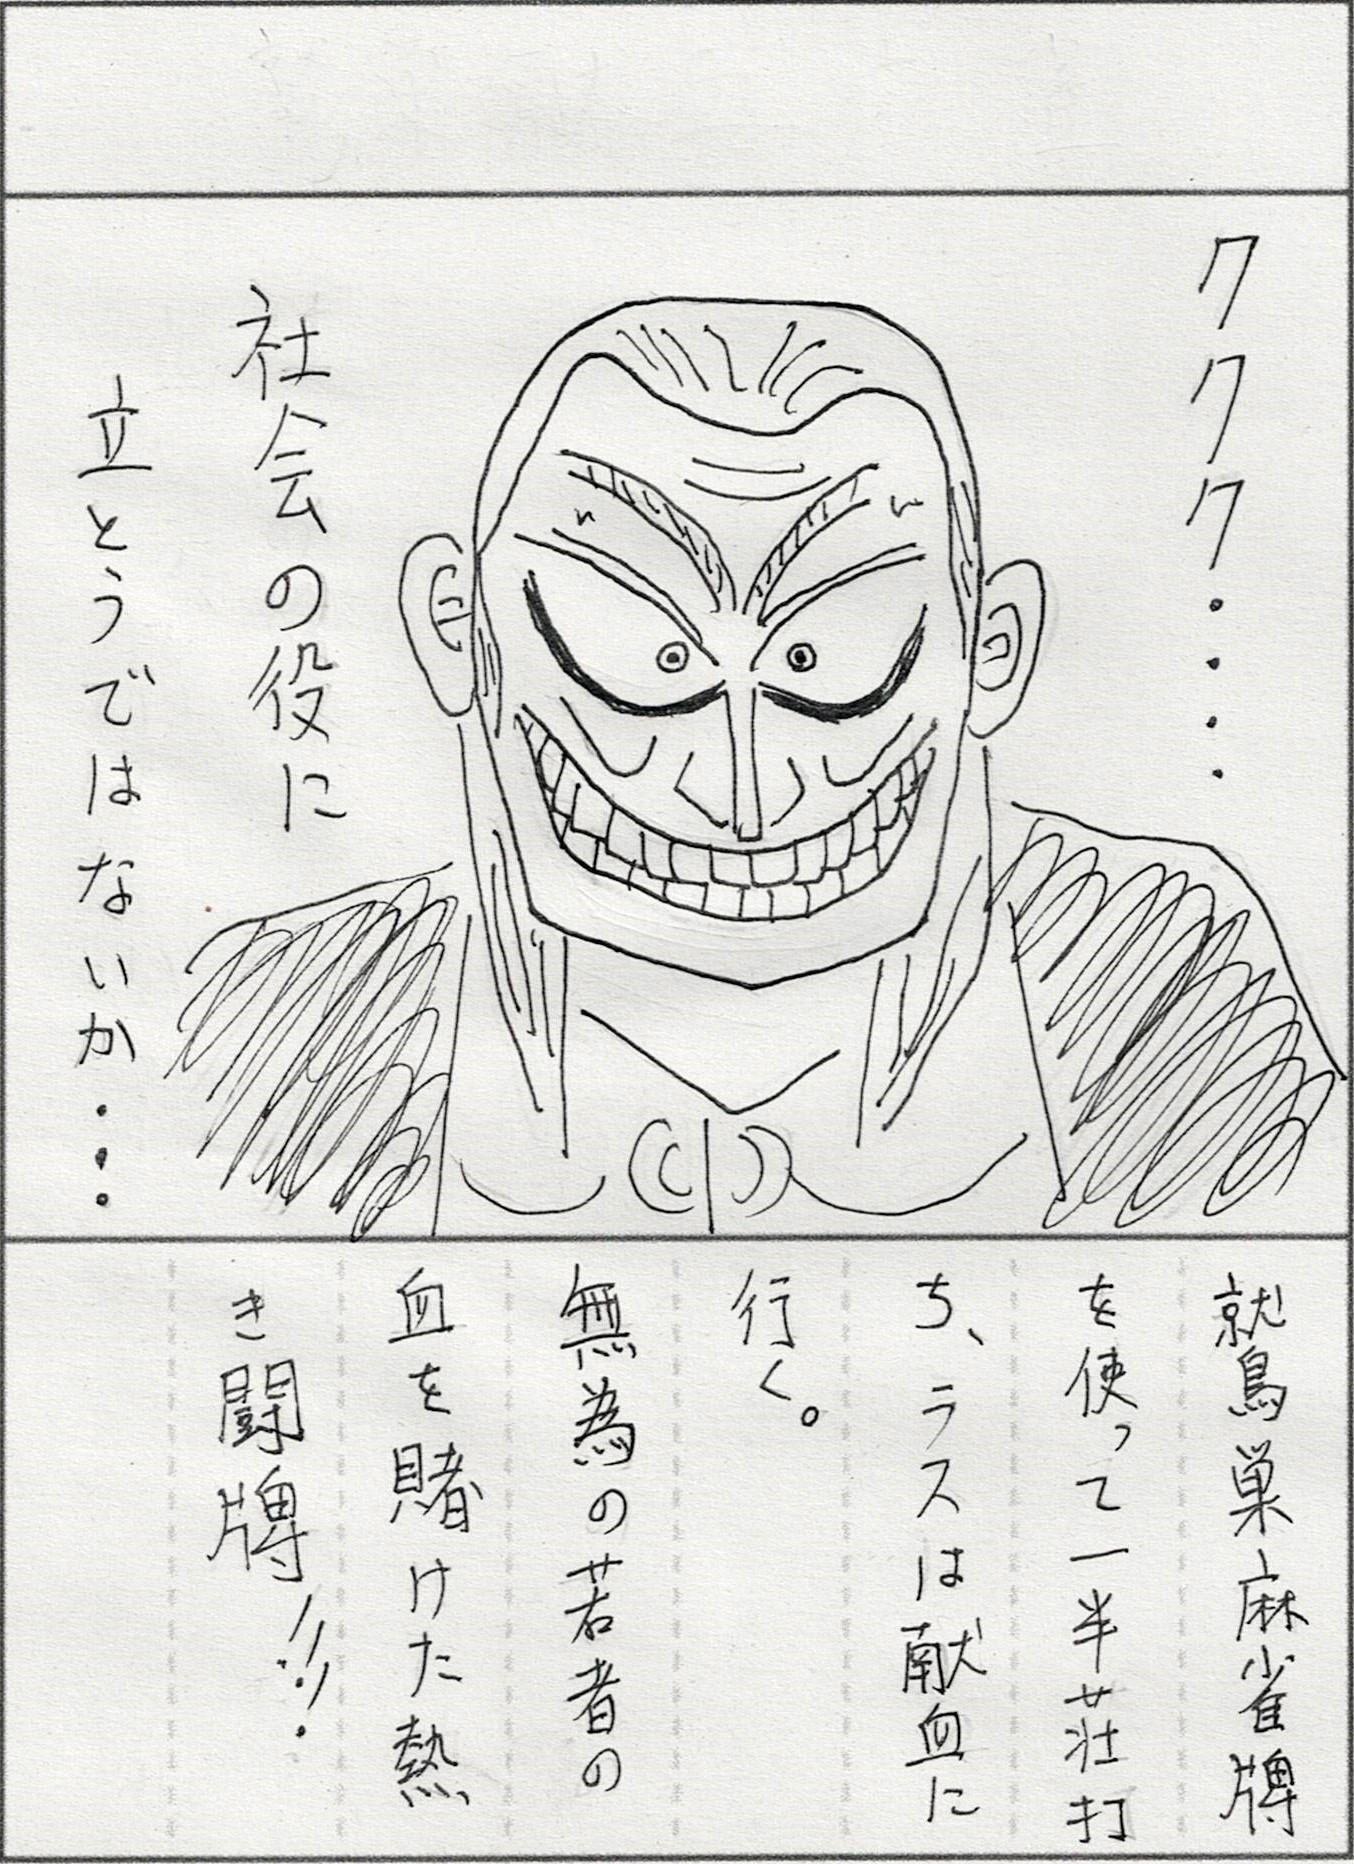 ククク・・・・
社会の役に
立とうではないか・・・
鷲巣麻雀牌
を使って一半荘打
ち、ラスは献血に
行く。
無為の若者の
血を賭けた熱
き闘牌!!!